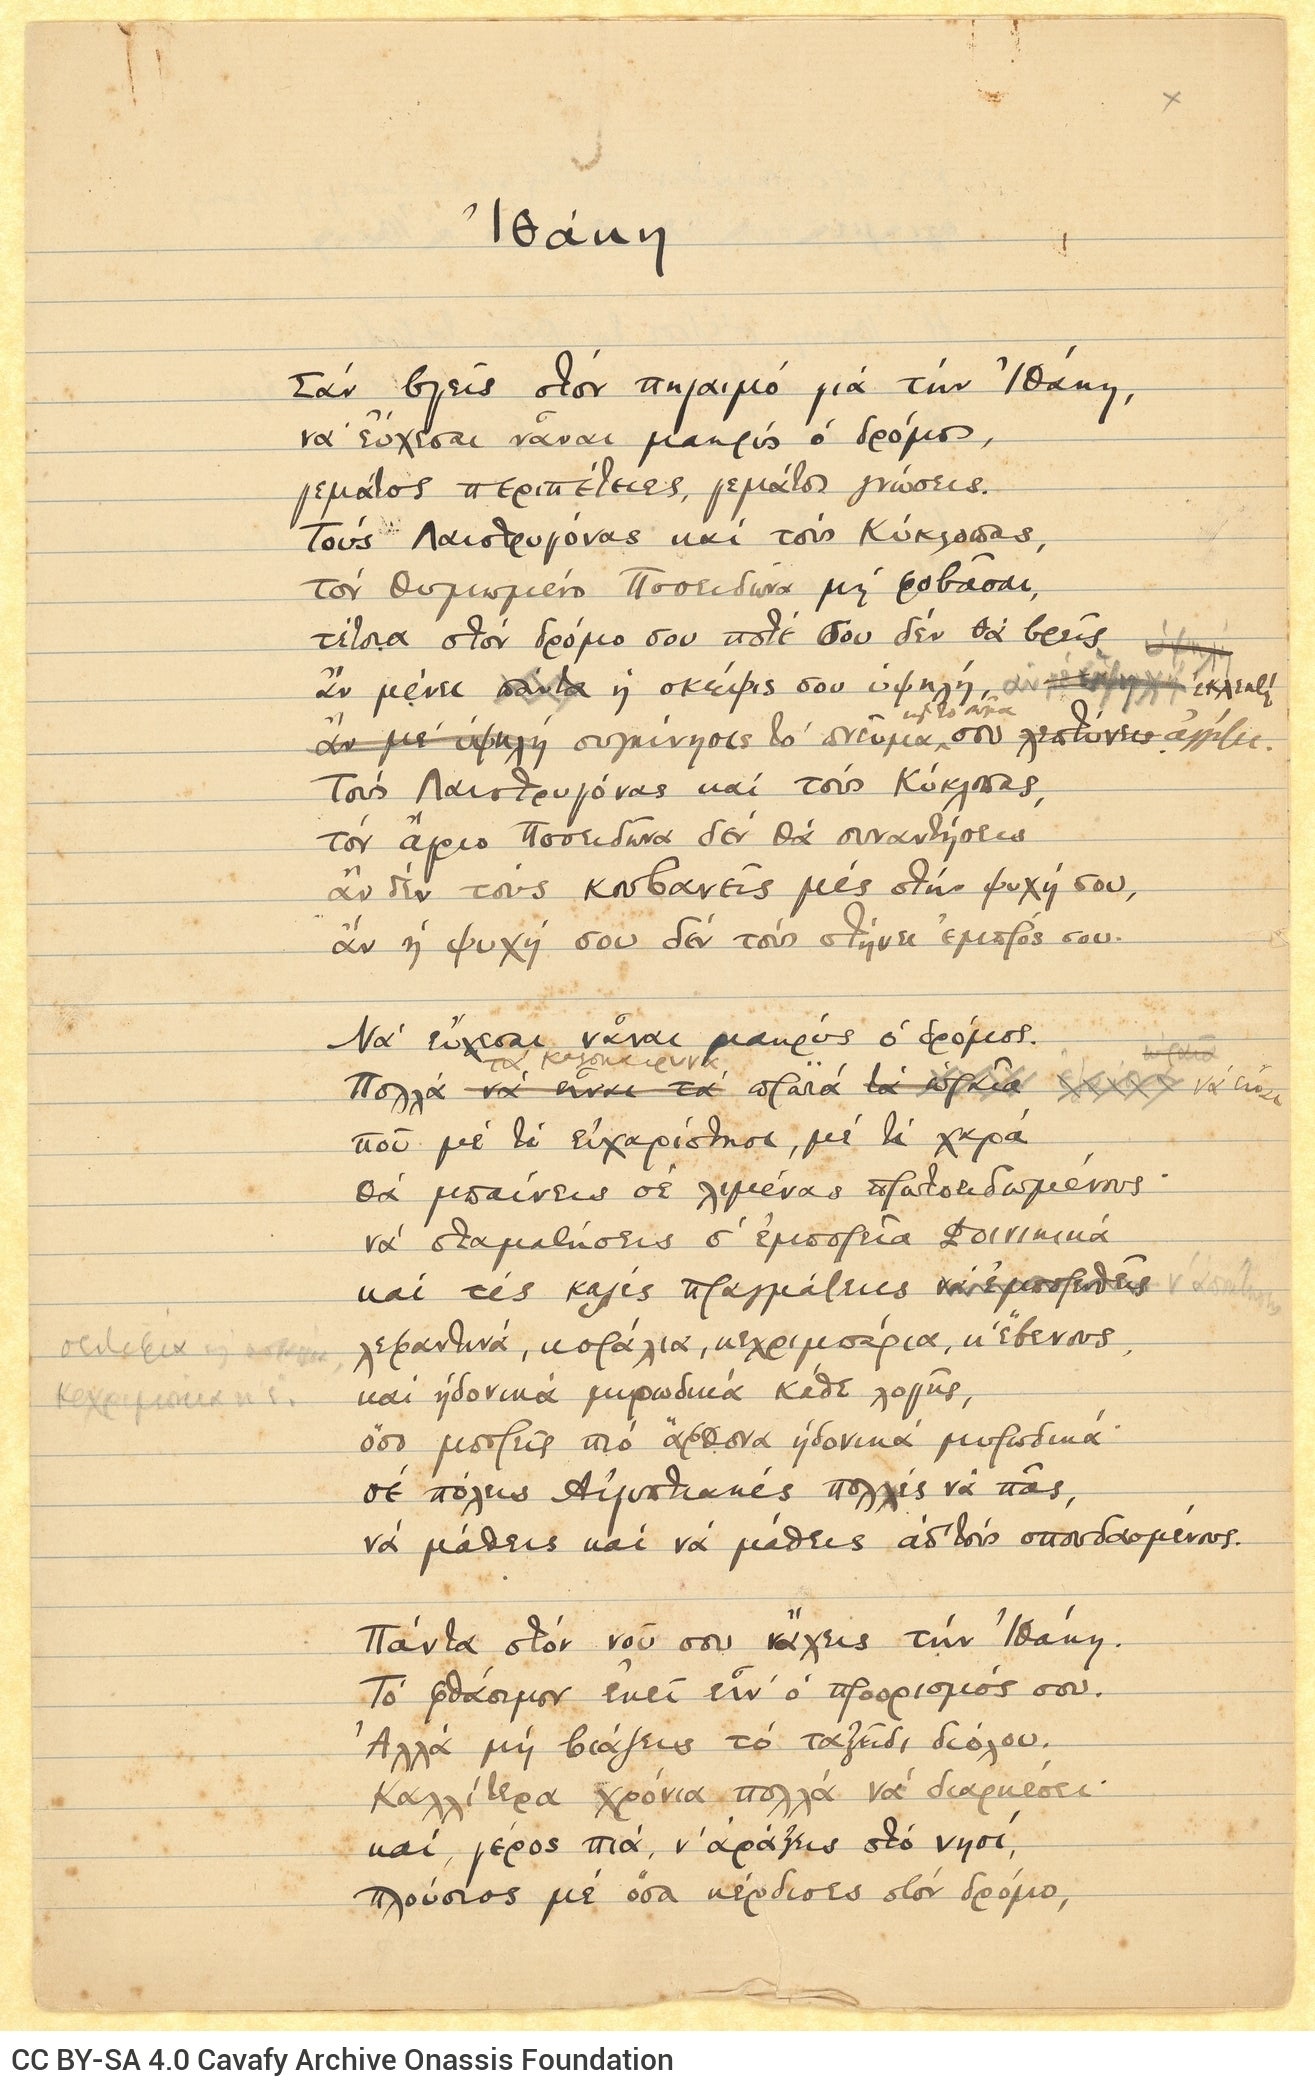 Ἰθάκη
Σάν βγεῖς στόν πηγαιμό γιά τήν Ἰθάκη,
νά εὔχεσαι νἆναι μακρύς ὁ δρόμος,
γεμάτος περιπέτειες, γεμάτος γνώσεις.
Τούς Λαιστρυγόνας καί τούς Κύκλωπας,
τόν θυμωμένο Ποσειδῶνα μή φοβᾶσαι,
τέτοια στόν δρόμο σου ποτέ σου δέν θά βρεῖς
ὑψηλή
ἄν μένει πάντα ἡ σκέψις σου ὑψηλή, ἄν ἐκλεκτή
κ̓ τό σῶμα
ἄν μέ ὑψηλή συγκίνησις τό πνεῦμα σου λεπτύνεις ἀγγίζει.
Τούς Λαιστρυγόνας καί τούς Κύκλωπας,
τόν ἄγριο Ποσειδῶνα δέν θά συναντήσεις
ἄν δέν τούς κουβανεῖς μές στήν ψυχή σου,
ἄν ἡ ψυχή σου δέν τούς στήνει ἐμπρός σου.
Νά εὔχεσαι νἆναι μακρύς ὁ δρόμος.
τά καλοκαιρινά ὡραῖα
Πολλά νά εἶναι τά πρωϊά τά ὡραῖα νά εἶναι
πού μέ τί εὐχαρίστησι, μέ τί χαρά
θά μπαίνεις σέ λιμένας πρωτοειδωμένους·
νά σταματήσεις σ' ἐμπορεῖα Φοινικικά
καί τές καλές πραγμάτειες νά ἐμπορευθεῖς ν' ἀποκτήσεις
σεντέφια
λεφαντινά, κοράλια, κεχριμπάρια, κ' ἔβενους,
κεχριμπάρια κ' ἔ.
καί ἡδονικά μυρωδικά κάθε λογῆς,
ὅσο μπορεῖς πιό ἄφθονα ἡδονικά μυρωδικά·
σέ πόλεις Αἰγυπτιακές πολλές νά πᾶς,
νά μάθεις καί νά μάθεις ἀπ' τούς σπουδασμένους.
Πάντα στόν νοῦ σου νἄχεις τήν Ἰθάκη.
Τό φθάσιμον ἐκεῖ εἶν' ὁ προορισμός σου.
Ἀλλά μή βιάζεις τό ταξεῖδι διόλου.
Καλλίτερα χρόνια πολλά νά διαρκέσει·
καί, γέρος πιά, ν' ἀράξεις στό νησί,
πλούσιος μέ ὅσα κέρδισες στόν δρόμο,
CC BY-SA 4.0 Cavafy Archive Onassis Foundation